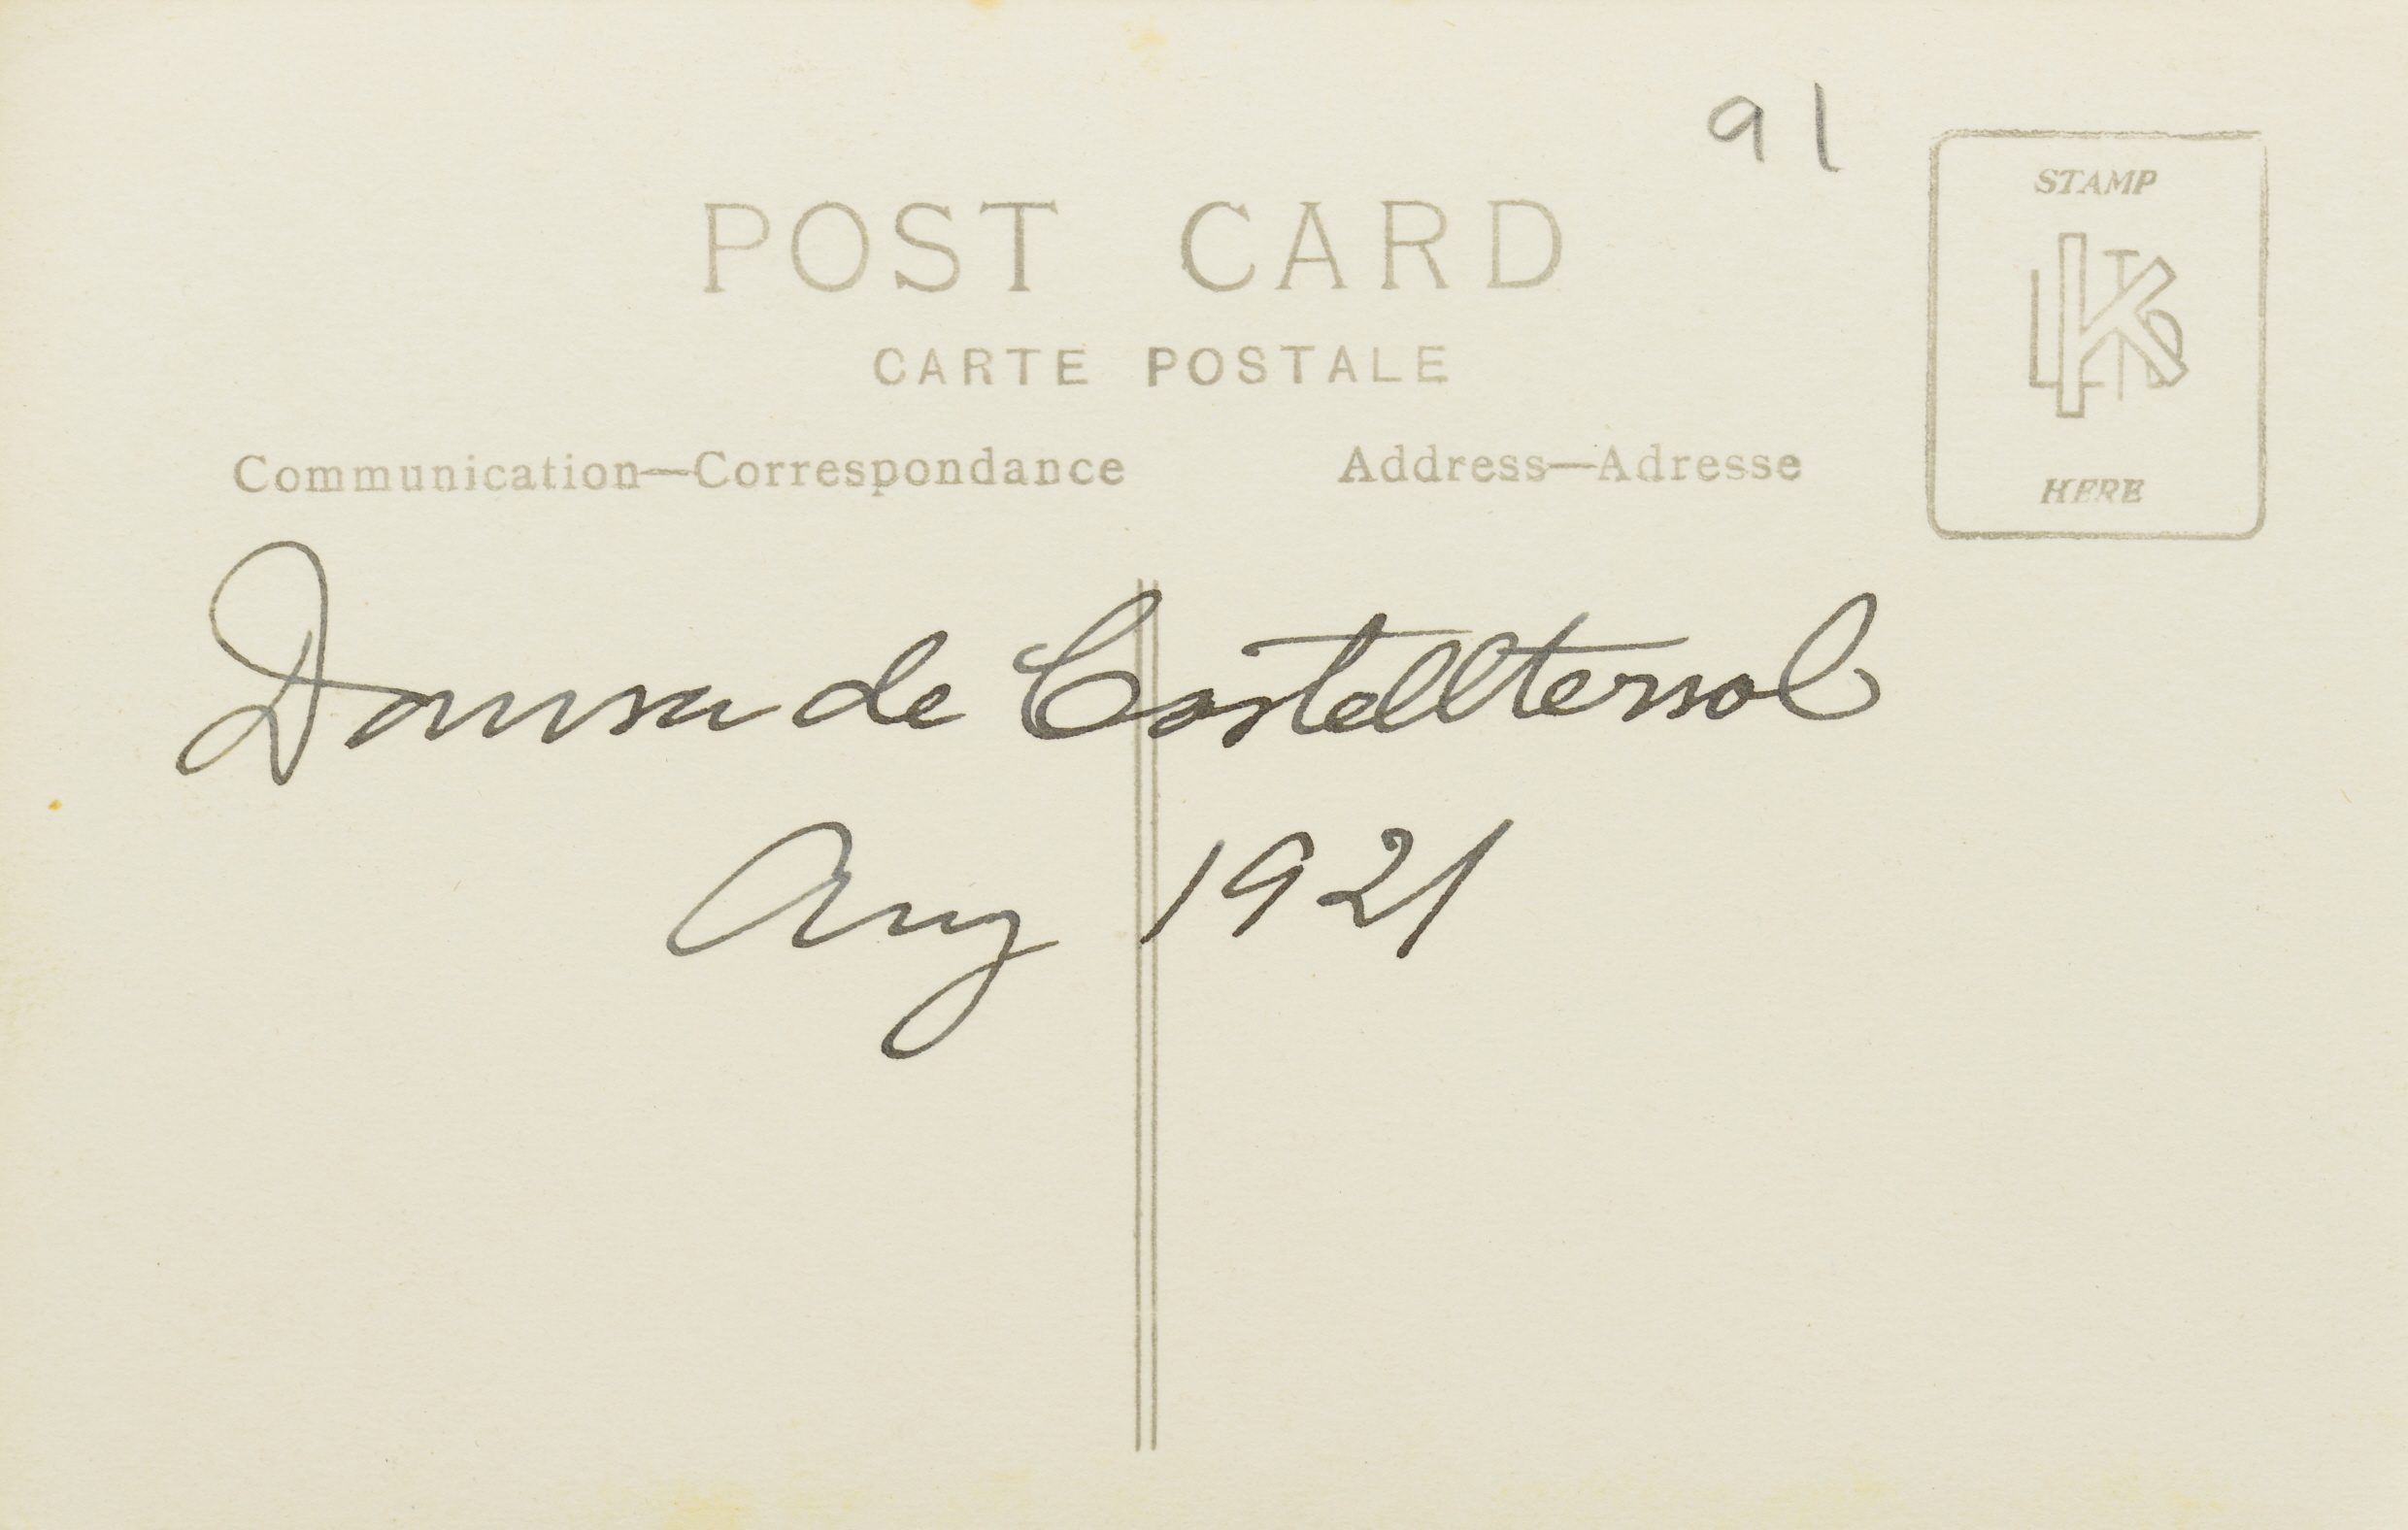 91
POST CARD
STAMP
CARTE POSTALE
K LTD
Communication—Correspondance
Address—Adresse
HERE
Dansa de Castelltersol
Any 1921